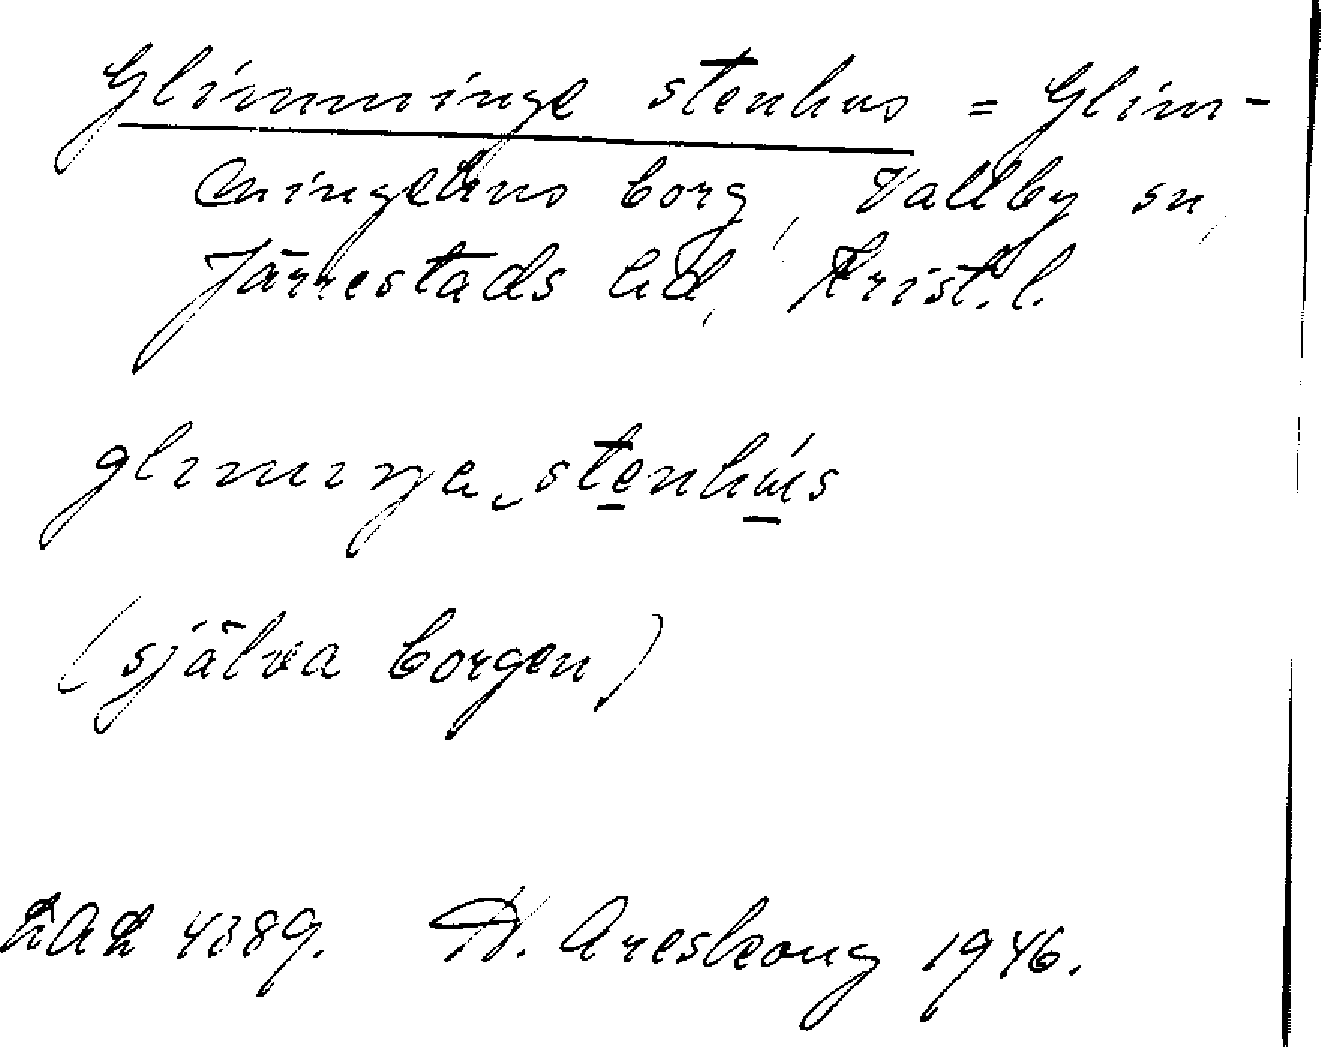 Glimminge stenhus = Glim-
mingehus borg, Vallby sn,
Järrestads hd, Krist. l.
glimiŋa stenhús
(själva borgen)
LAL 4389. H. Areskoug 1946.